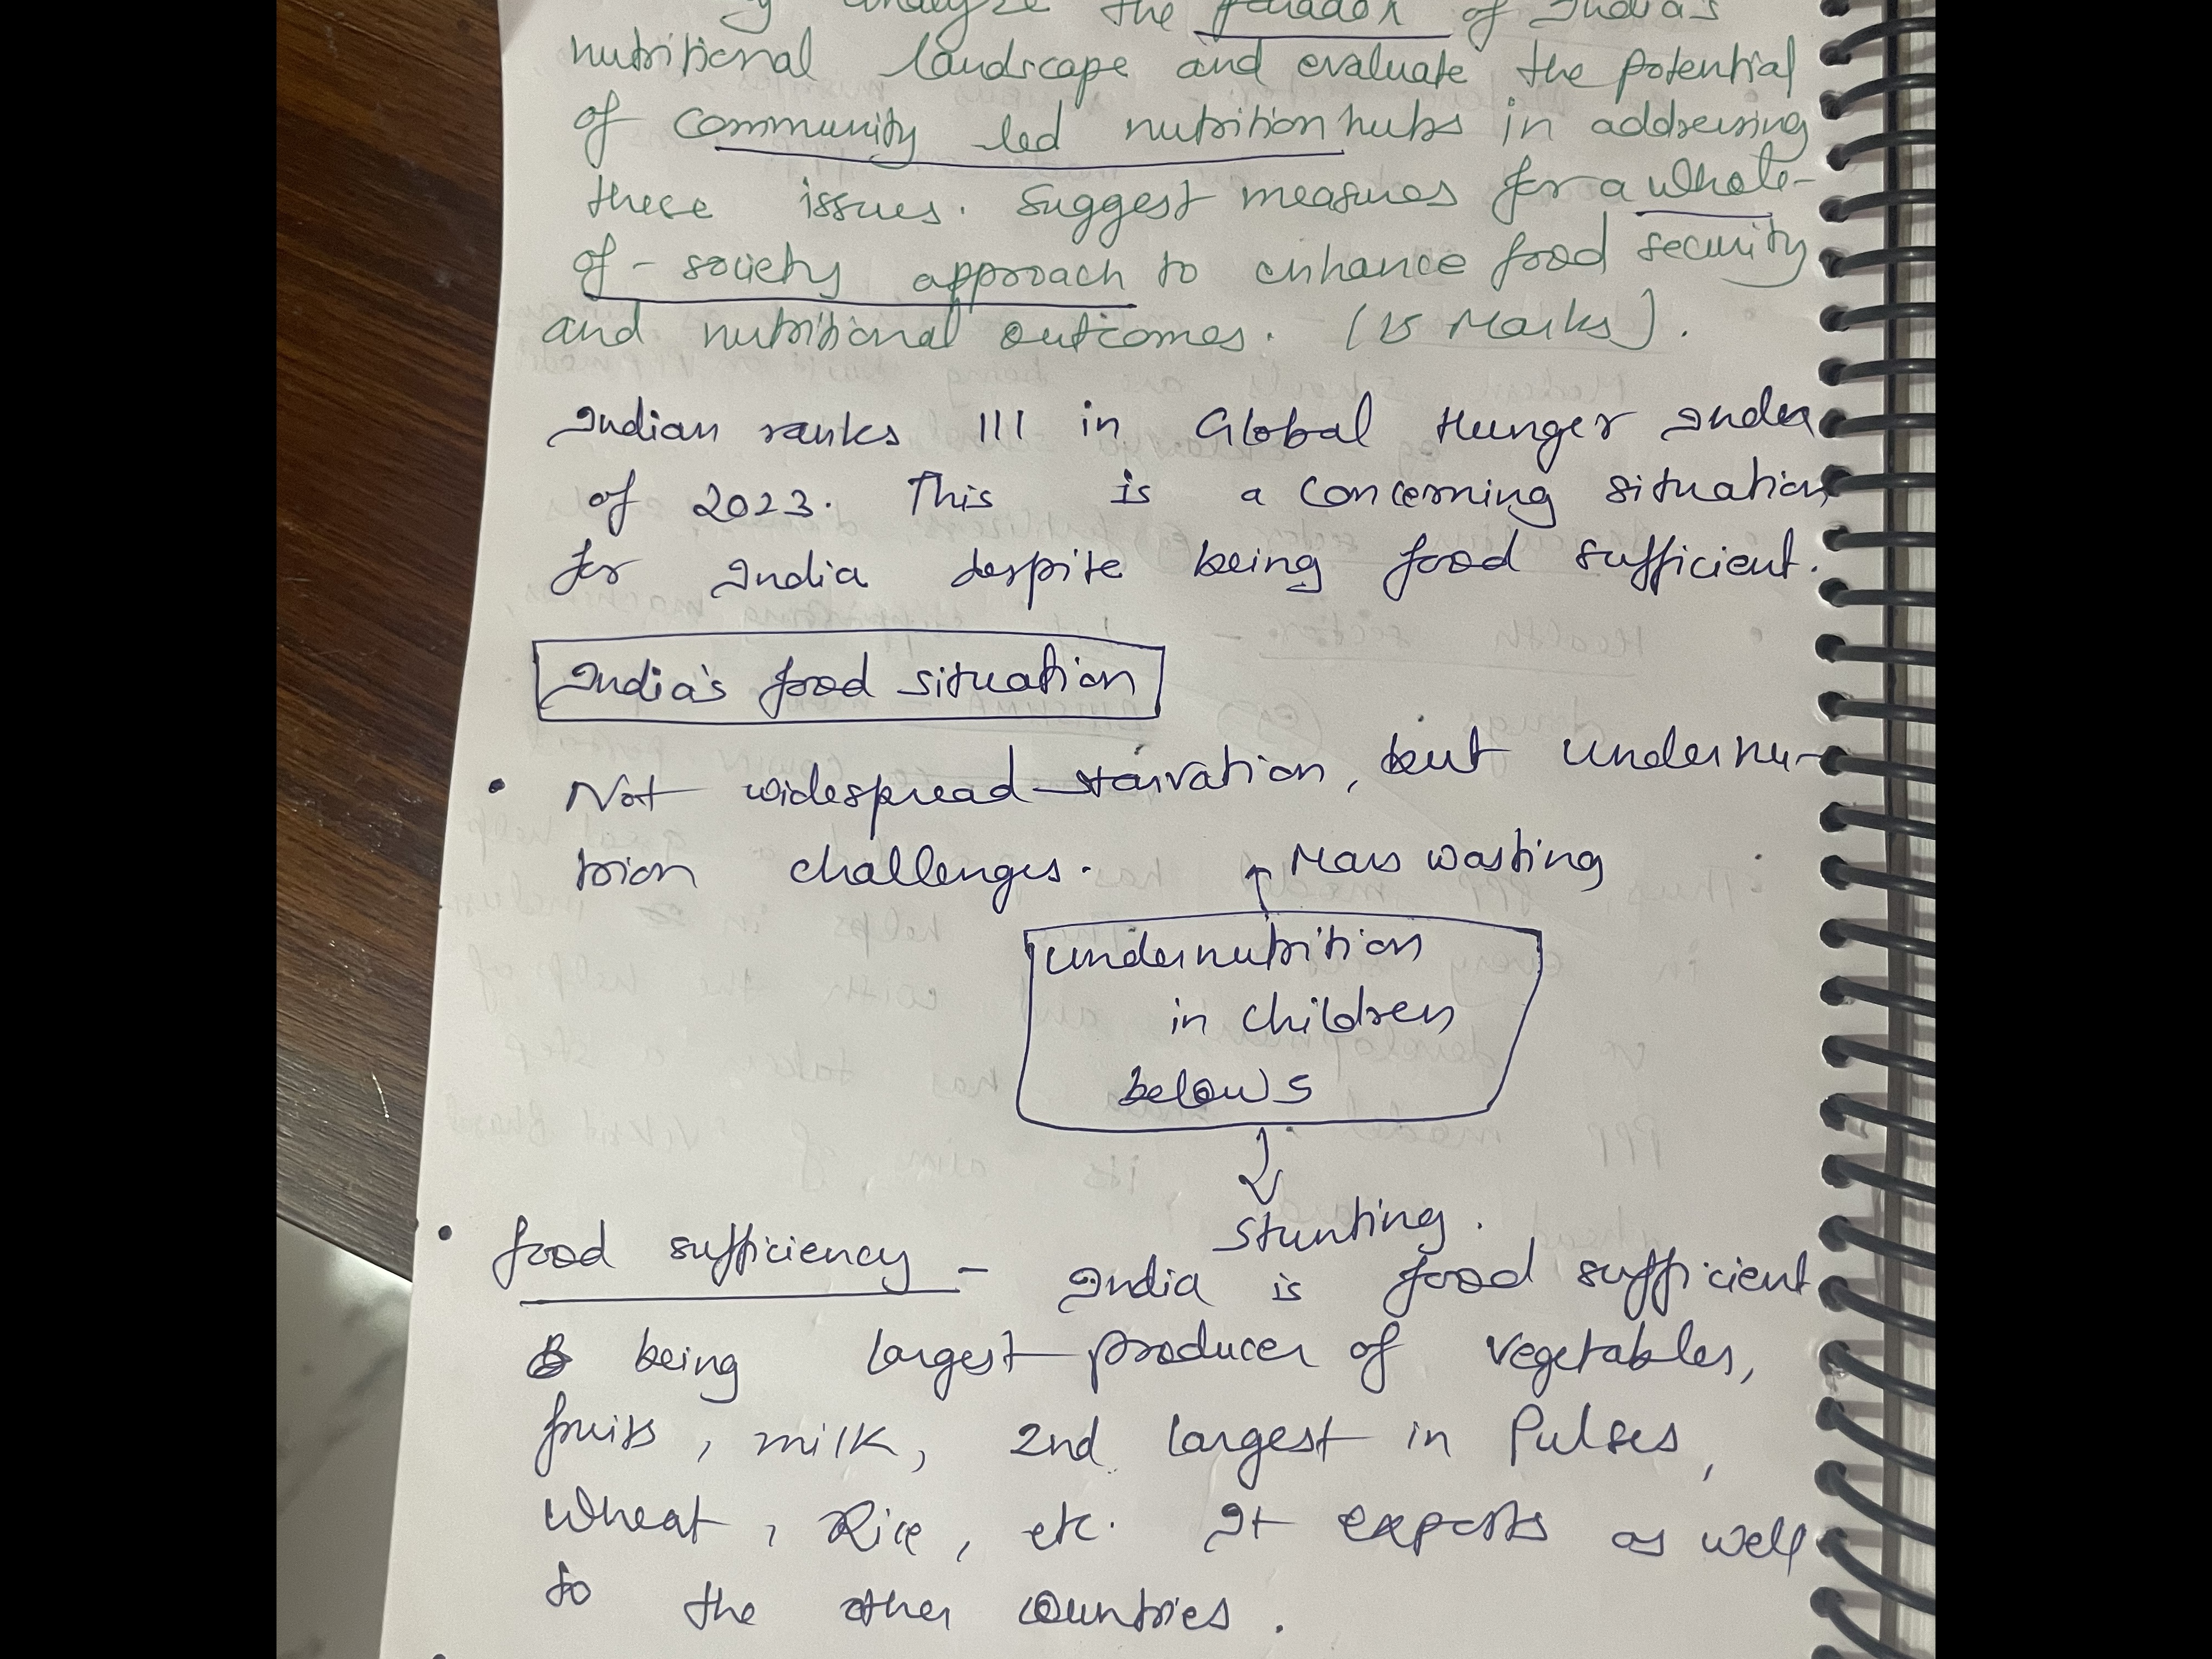 analyze the paradox of India's
nutritional landscape and evaluate the potential
of community led nutrition hubs in addressing
these issues. Suggest measures for a whole-
of-society approach to enhance food security
and nutritional outcomes. (15 Marks).
Indian ranks 111 in Global Hunger Index
of 2023. This is a concerning situation
for India despite being food sufficient.
India's food situation
• Not widespread starvation, but undernu-
trion challenges.
Mass wasting
undernutrition
in children
below 5
Stunting.
• food sufficiency - India is food sufficient
being largest producer of vegetables,
fruits, milk, 2nd largest in Pulses,
wheat, Rice, etc. It exports as well
to the other countries.